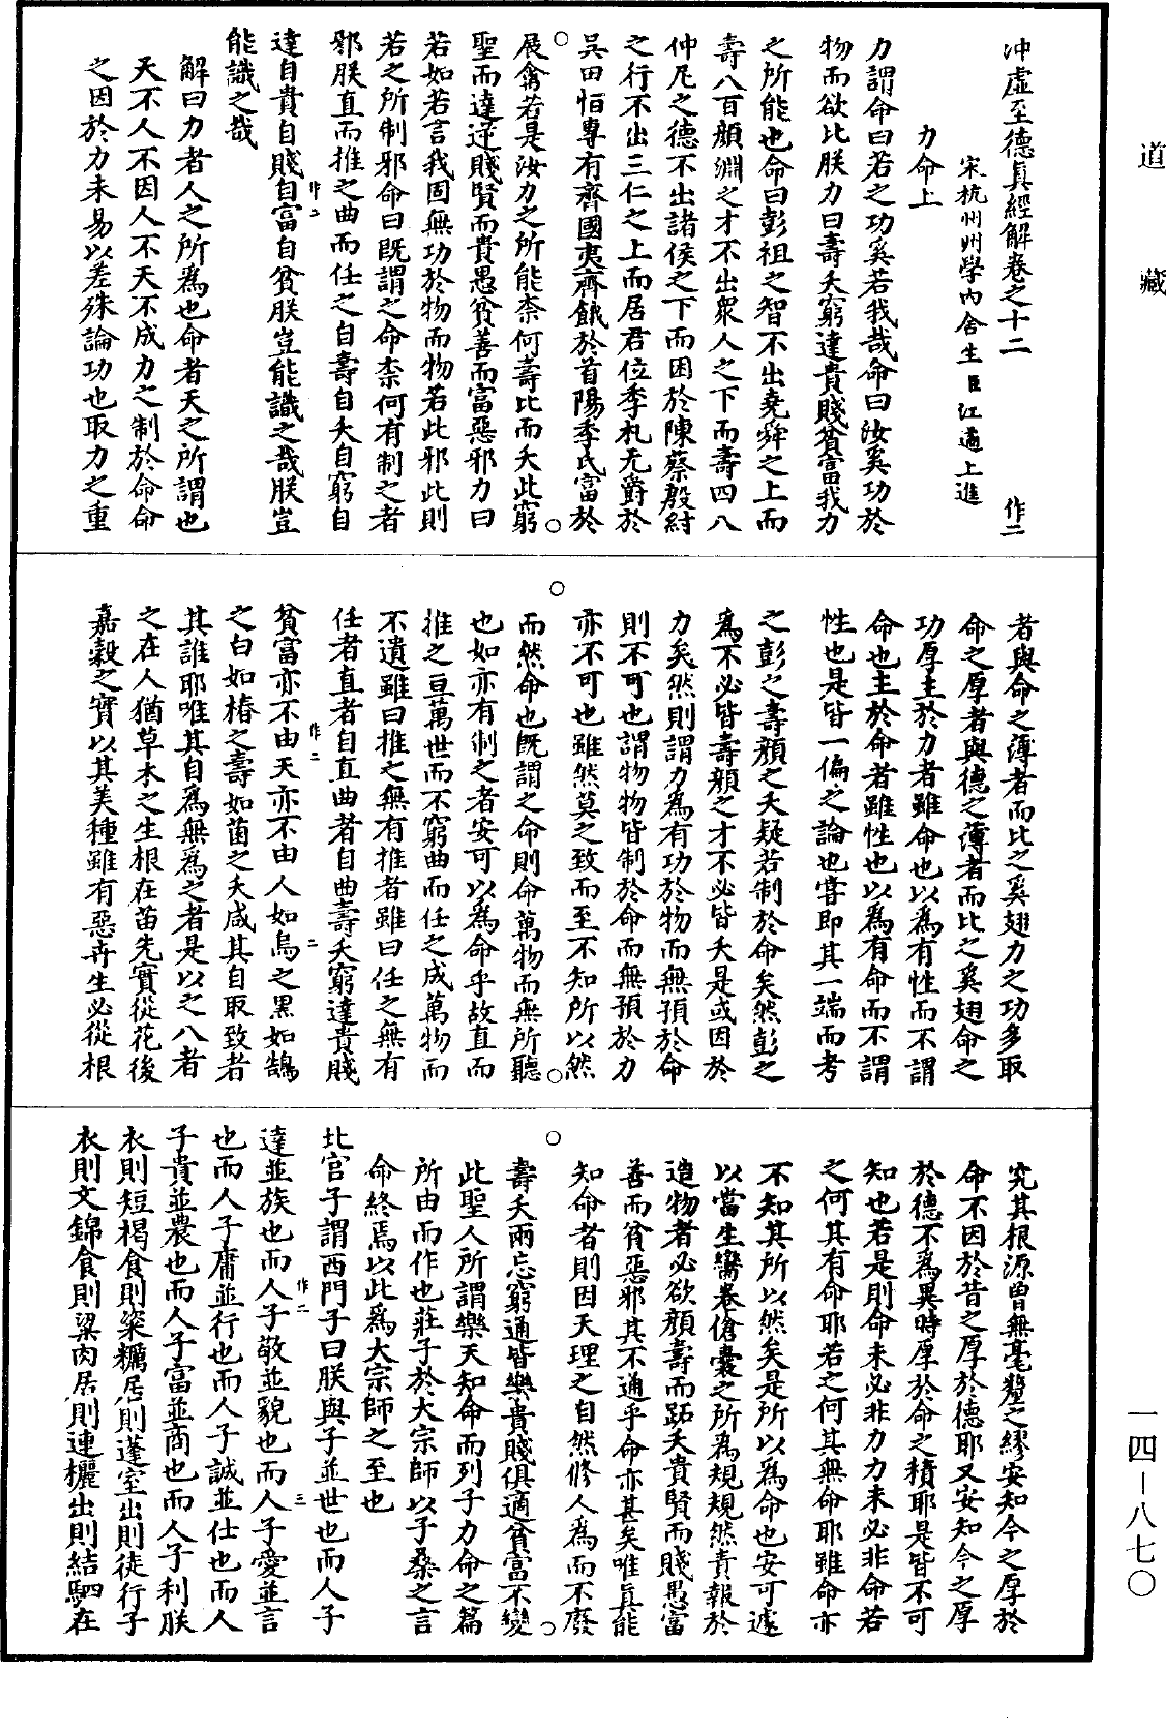 道藏
沖虛至德眞經解卷之十二
作二
宋杭州州學內舍生臣江遹上進
力命上
力謂命曰若之功奚若我哉命曰汝奚功於
物而欲比朕力曰壽夭窮達貴賤貧富我力
之所能也命曰彭祖之智不出堯舜之上而
壽八百顏淵之才不出衆人之下而壽四八
仲尼之德不出諸侯之下而困於陳蔡殷紂
之行不出三仁之上而居君位季札无爵於
吳田恒專有齊國夷齊餓於首陽季氏富於
展禽若是汝力之所能柰何壽比而夭此窮
聖而達逆賤賢而貴愚貧善而富惡邪力曰
若如若言我固無功於物而物若此邪此則
若之所制邪命曰既謂之命柰何有制之者
邪朕直而推之曲而任之自壽自夭自窮自
達自貴自賤自富自貧朕豈能識之哉朕豈
作二
能識之哉
解曰力者人之所爲也命者天之所謂也
天不人不因人不天不成力之制於命命
之因於力未易以差殊論功也取力之重
者與命之薄者而比之奚翅力之功多取
命之厚者與德之薄者而比之奚翅命之
功厚主於力者雖命也以爲有性而不謂
命也主於命者雖性也以爲有命而不謂
性也是皆一偏之論也嘗即其一端而考
之彭之壽顏之夭疑若制於命矣然彭之
爲不必皆壽顏之才不必皆夭是或因於
力矣然則謂力爲有功於物而無預於命
則不可也謂物物皆制於命而無預於力
亦不可也雖然莫之致而至不知所以然
而然命也既謂之命則命萬物而無所聽
也如亦有制之者安可以爲命乎故直而
推之亘萬世而不窮曲而任之成萬物而
不遺雖曰推之無有推者雖曰任之無有
任者直者自直曲者自曲壽夭窮達貴賤
貧富亦不由天亦不由人如烏之黑如鵠
作二
二
之白如椿之壽如菌之夭咸其自取致者
其誰耶唯其自爲無爲之者是以之八者
之在人猶草木之生根在苗先實從花後
嘉穀之實以其美種雖有惡卉生必從根
究其根源曾無毫釐之繆安知今之厚於
命不因於昔之厚於德耶又安知今之厚
於德不爲異時厚於命之積耶是皆不可
知也若是則命未必非力力未必非命若
之何其有命耶若之何其無命耶雖命亦
不知其所以然矣是所以爲命也安可遽
以當生臠卷傖囊之所爲規規然責報於
造物者必欲顏壽而跖夭貴賢而賤愚富
善而貧惡邪其不通乎命亦甚矣唯眞能
知命者則因天理之自然脩人爲而不廢
壽夭兩忘窮通皆樂貴賤俱適貧富不變
此聖人所謂樂天知命而列子力命之篇
所由而作也莊子於大宗師以子桑之言
命終焉以此爲大宗師之至也
北宮子謂西門子曰朕與子並世也而人子
達並族也而人子敬並貌也而人子愛並言
作二
三
也而人子庸並行也而人子誠並仕也而人
子貴並農也而人子富並商也而人子利朕
衣則短褐食則粢糲居則蓬室出則徒行子
衣則文錦食則粱肉居則連欐出則結駟在
一四—八七〇